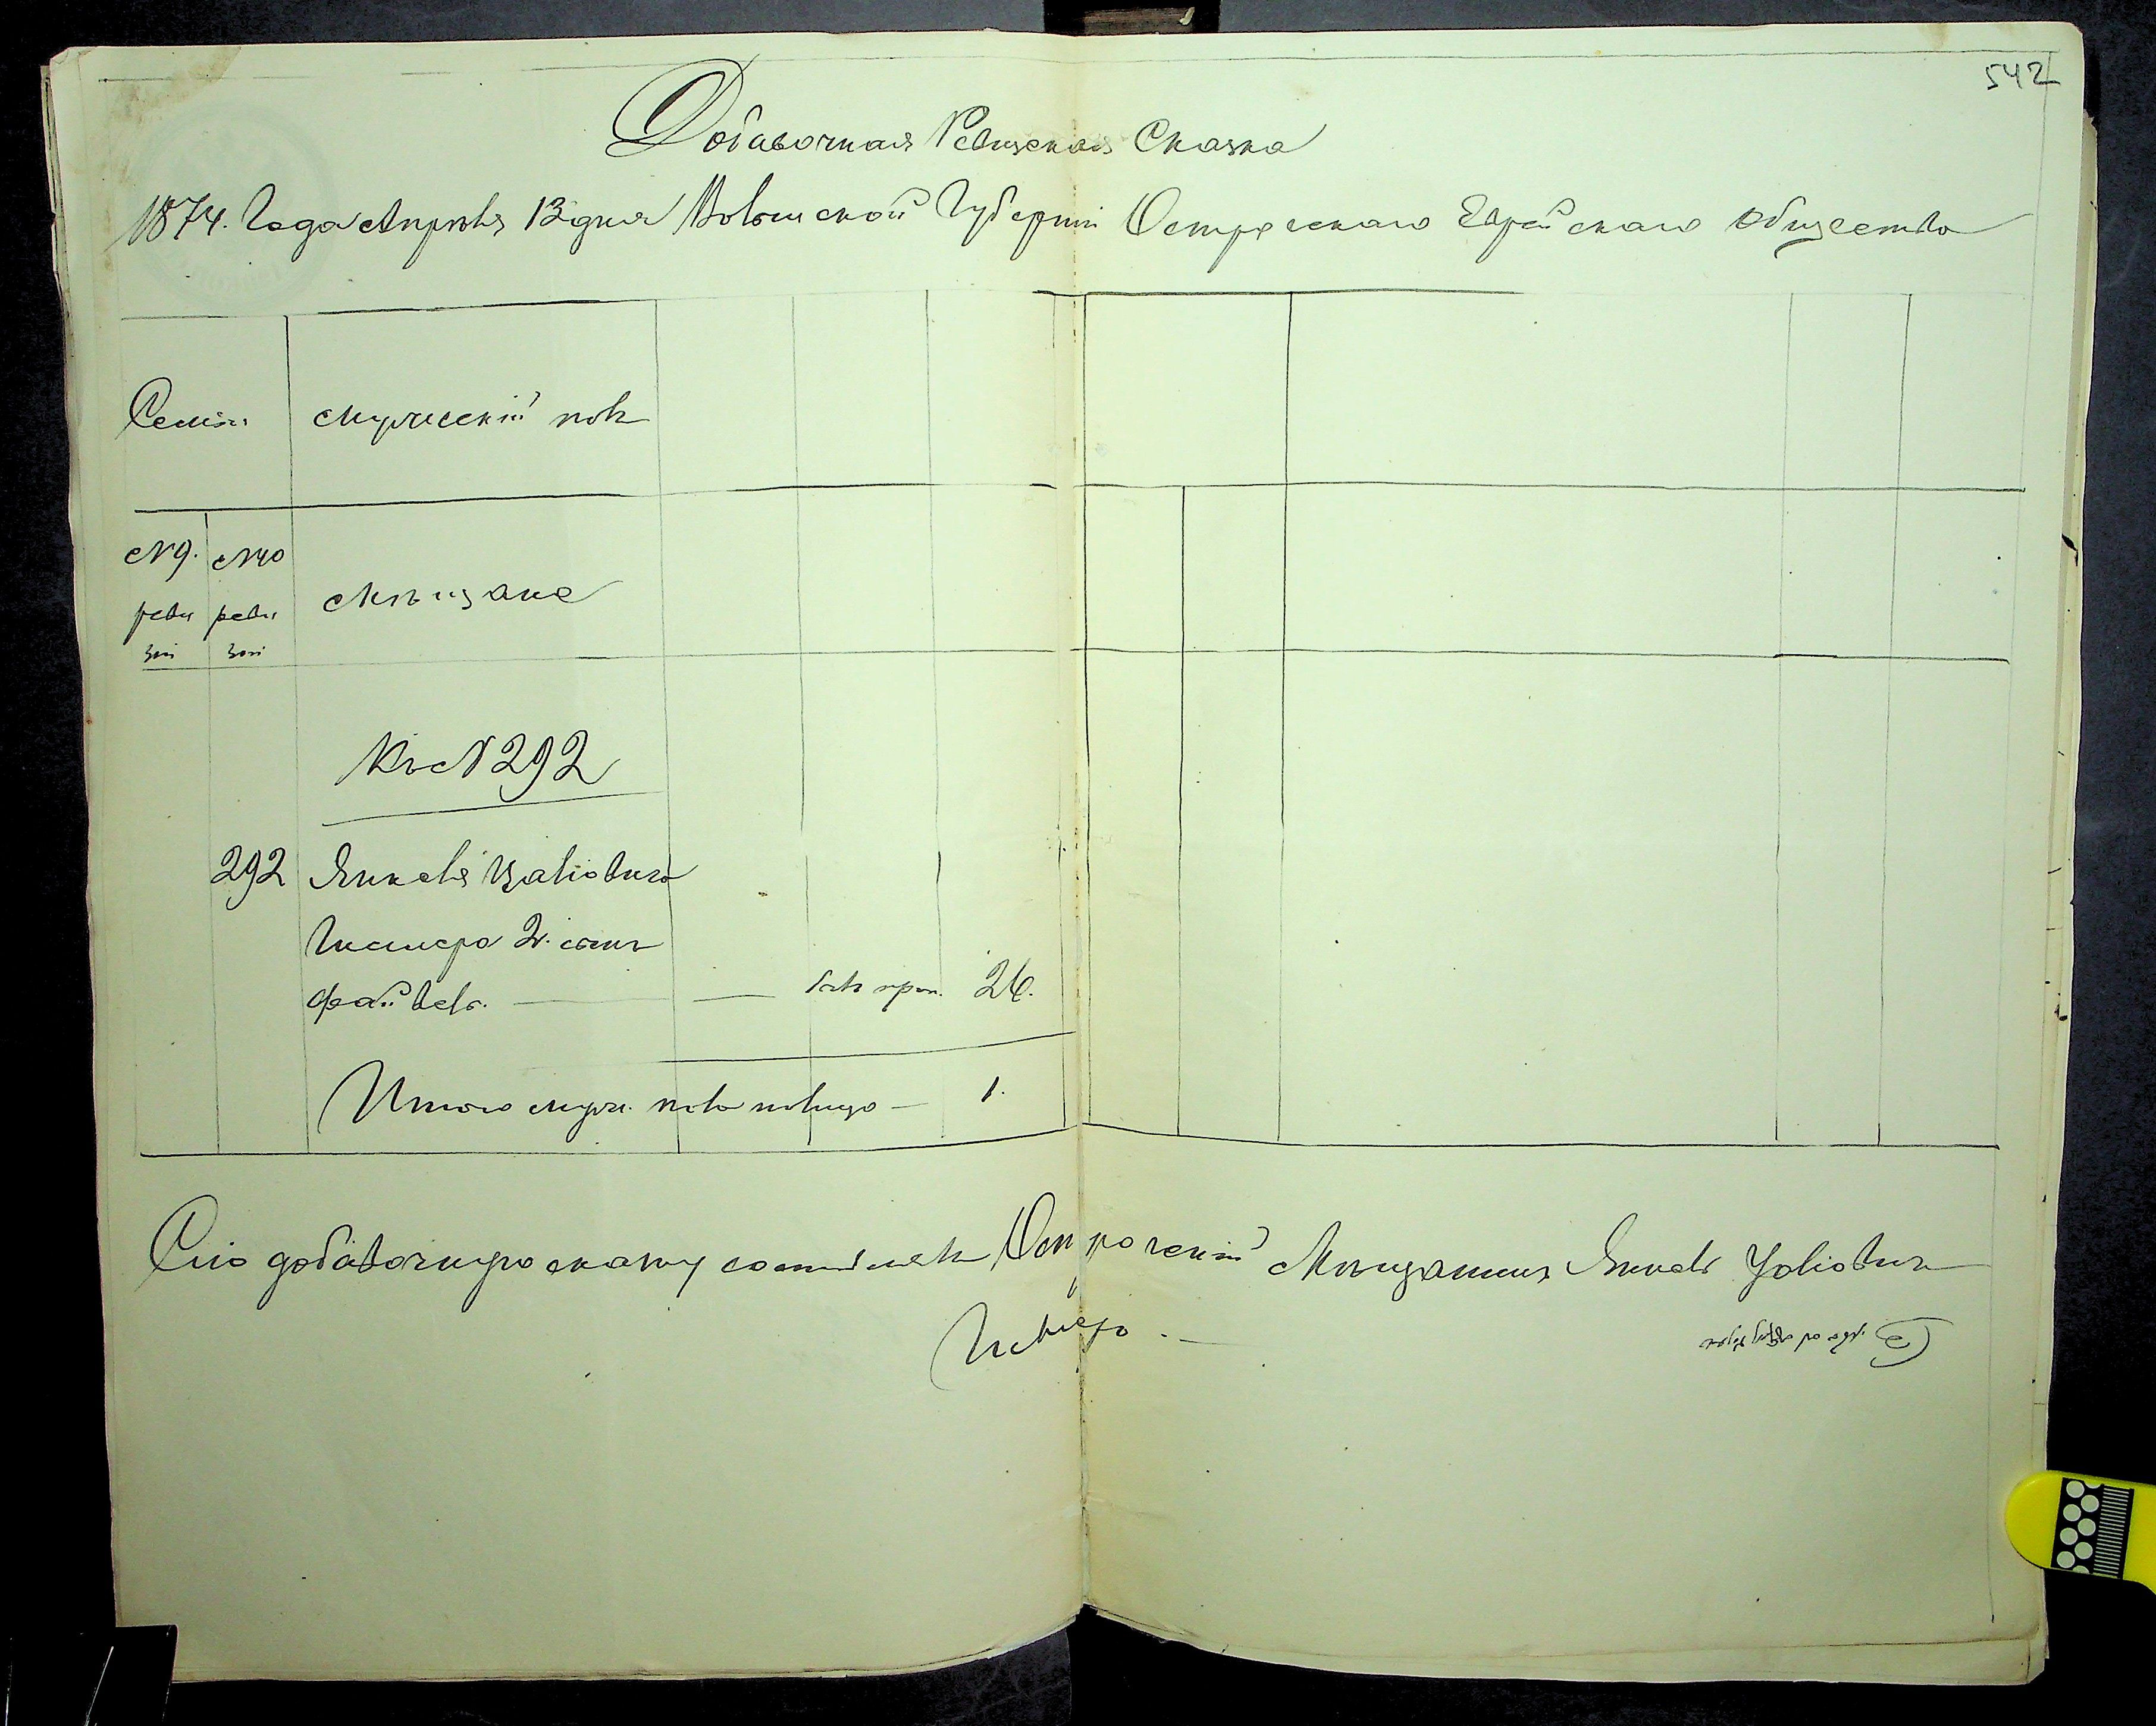 542
Добавочная Ревизская Сказка
1874. Года Апрѣля 13 дня Волынской Губерніи Острожскаго Еврейскаго Общества
Семьи
мужескій полъ
№ 9. ревизіи
№ 10 ревизіи
мѣщане
Къ № 292
292 Янкеля Іоліовича
2. сынъ
Файвель. — былъ проп. 26.
Итого муж. пола налицо — 1.
Сію добавочную сказку составилъ Острожскій Мѣщанинъ Янкель Іоліовичъ